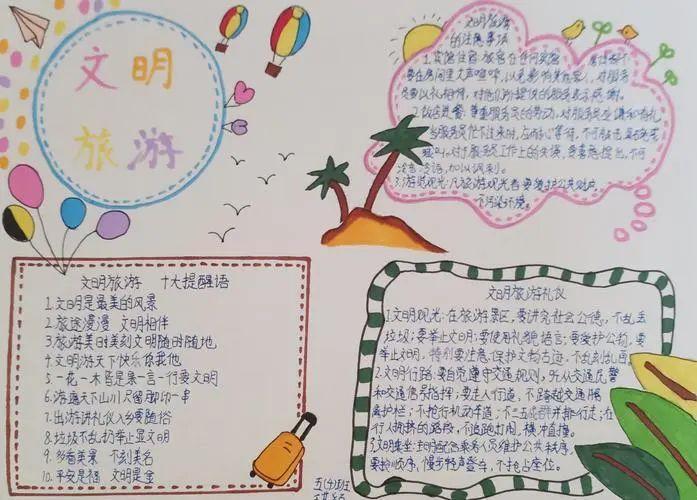 文明
旅游
文明旅游
的注意事项
1.宾馆住宿:旅客在任何宾馆居住都不
要在房间里大声喧哗,以免影响其他客人,对服务
员要以礼相待,对他们所提供的服务表示感谢。
2.饭店进餐:尊重服务员的劳动,对服务员应谦和有礼
当服务员忙不过来时,应耐心等待,不可敲击桌碗或
喊叫。对于服务员工作上的失误,要善意提出,不可
冷言冷语,加以讽刺。
3.游览观光:凡旅游观光者要维护公共财产
不污染环境。
文明旅游 十大提醒语
1.文明是最美的风景
2.旅途漫漫 文明相伴
3.旅游美时美刻 文明随时随地
4.文明游天下 快乐你我他
5.一花一木皆是景 一言一行要文明
6.游遍天下山川 只留脚印一串
7.出游讲礼仪 入乡要随俗
8.垃圾不乱扔 举止显文明
9.多看美景 不刻美名
10.平安是福 文明是金
文明旅游礼仪
1.文明观光:在旅游景区,要讲究社会公德,不乱丢
垃圾;要举止文明;要使用礼貌语言;要爱护公物,要
举止文明,特别要注意保护文物古迹,不乱刻乱画
2.文明行路:要自觉遵守交通规则,听从交通民警
和交通信号指挥;要走人行道,不跨越交通隔
离护栏;不抢行机动车道;不三五成群并排行走;在
行人拥挤的路段,不追跑打闹、横冲直撞。
3.文明乘坐:主动配合乘务人员维护公共秩序,
要抢顺序,慢步轻声登车,不抢占座位。
五(4)班